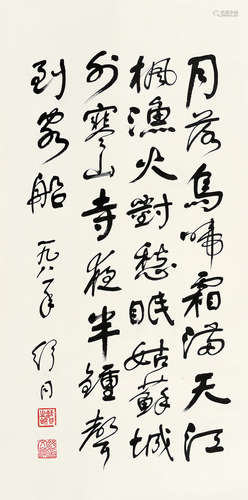 月落烏啼霜滿天江
楓漁火對愁眠姑蘇城
外寒山寺夜半鐘聲
到客船 一九八一年